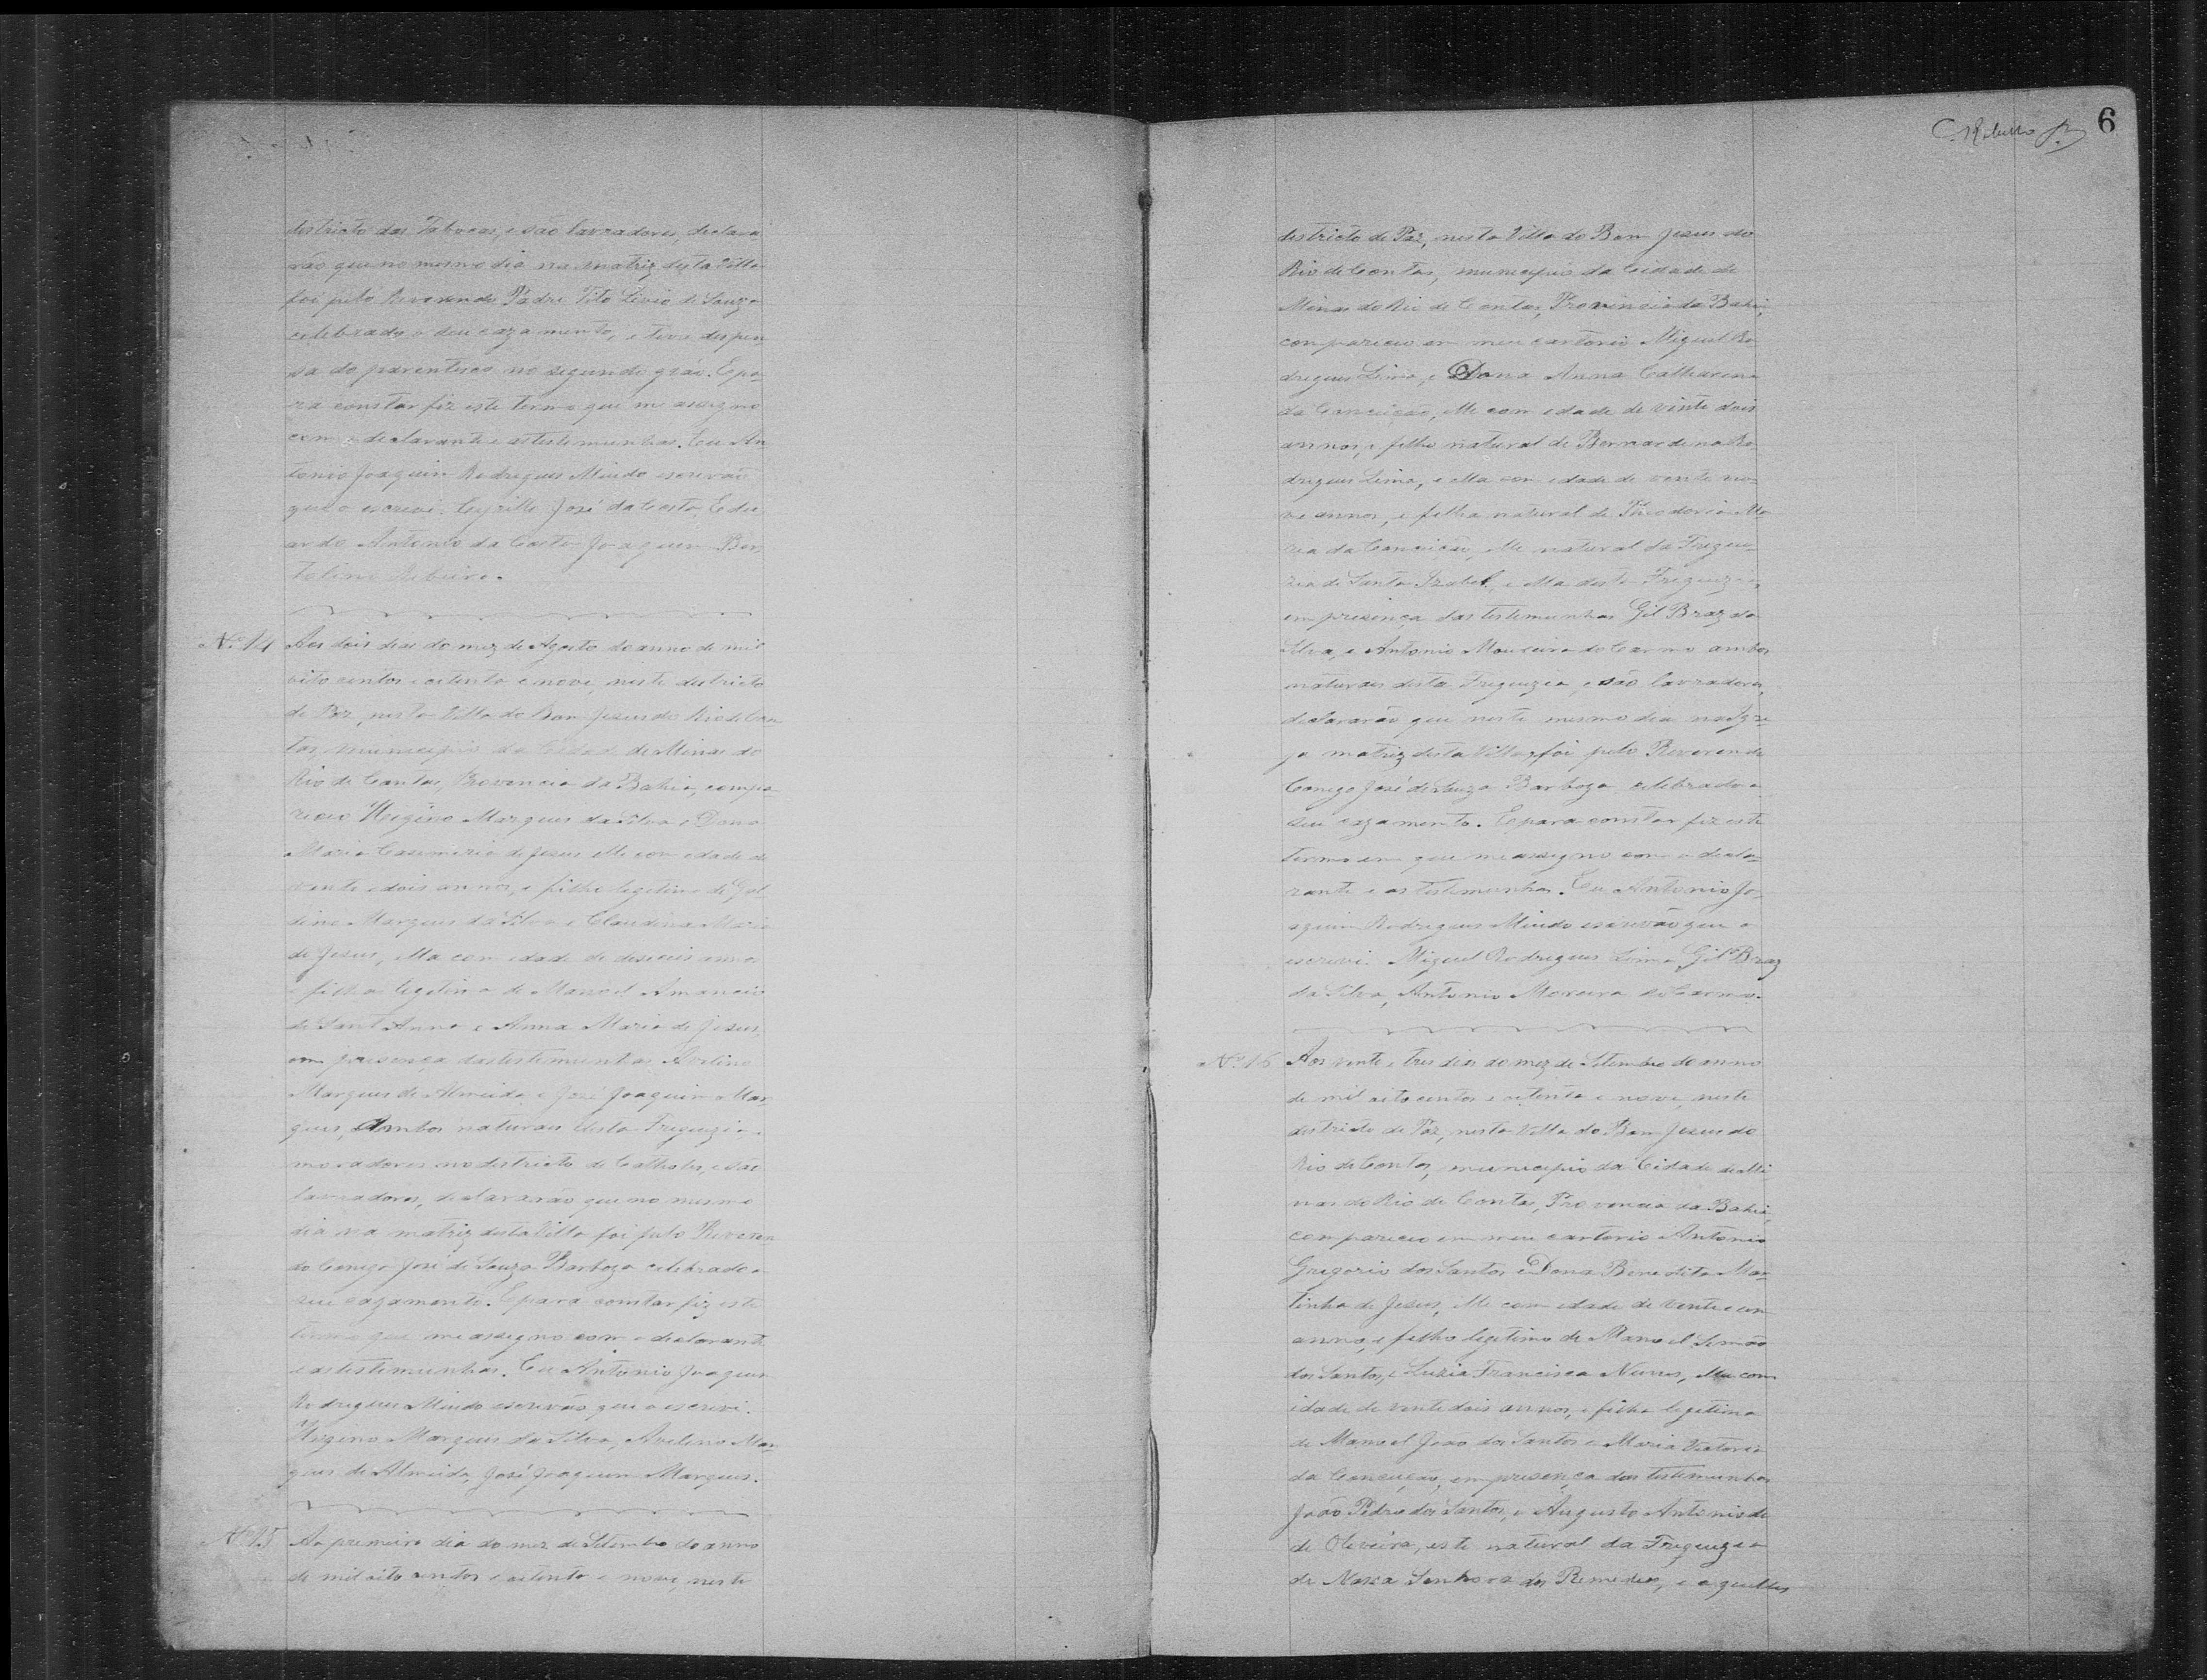 districto das Tabocas, e são lavradores, declara
rão que no mesmo dia na matriz desta Villa
foi pelo Reverendo Padre Tito Livio de Souza
celebrado o seu cazamento, e teve dispen
sa do parentesco no segundo gráo. E pa-
ra constar fiz este termo que me assigno
com o declarante e as testemunhas. Eu An
tonio Joaquim Rodrigues Mindo escrivão
que o escrevi. Cyrillo José da Costa, Edu
ardo Antonio da Costa Joaquim Ber
tolino Ribeiro.
Nº 14 Aos dois dias do mez de Agosto do anno de mil
oito centos e oitenta e nove, neste districto
de Paz, nesta Villa do Bom Jesus do Rio de Con
tas municipio da Cidade de Minas do
Rio de Contas, Provincia da Bahia, compa-
receo Higino Marques da Silva e Dona
Maria Casemira de Jesus elle com edade de
vinte e dois annos, e filho legitimo de Gal
dino Marques da Silva e Claudina Maria
de Jesus, ella com edade de deseseis annos
e filha legitima de Manoel Amancio
de Sant Anna e Anna Maria de Jesus,
em presença das testemunhas Avelino
Marques de Almeida e José Joaquim Mar
ques, Ambos naturaes desta Freguezia
moradores no districto de Catholes, e são
lavradores, declararão que no mesmo
dia na matriz desta Villa foi pelo Reveren
do Conego José de Souza Barboza celebrado o
seu cazamento. E para constar fiz este
termo que me assigno com o declarante
e as testemunhas. Eu Antonio Joaquim
Rodrigues Mindo escrivão que o escrevi.
Higino Marques da Silva, Avelino Mar
ques de Almeida, José Joaquim Marques.
Nº 15 Ao premeiro dia do mez de Setembro do anno
de mil oito centos e oitenta e nove, neste
6
districto de Paz, nesta Villa do Bom Jesus do
Rio de Contas, municipio da Cidade de
Minas do Rio de Contas, Provincia da Bahia,
compareceo em meu cartorio Miguel Ro
drigues Lima, e Dona Anna Catharina
da Conceição, elle com edade de vinte dois
annos, e filho natural de Bernardina Ro
drigues Lima, e ella com edade de vinte no-
ve annos, e filha natural de Theodoria Ma
ria da Conceição, elle natural da Fregue-
zia de Santa Izabel, e ella desta Freguezia,
em presença das testemunhas Gil Braz da
Silva, e Antonio Moreira do Carmo ambos
naturaes desta Freguezia, e são lavradores,
declararão que neste mesmo dia na Igre
ja matriz desta Villa, foi pelo Reverendo
Conego José de Souza Barboza celebrado o
seu cazamento. E para constar fiz este
termo em que me assigno com o decla-
rante e as testemunhas. Eu Antonio Jo-
aquim Rodrigues Mindo escrivão que o
escrevi. Miguel Rodrigues Lima, Gil Braz
da Silva, Antonio Moreira do Carmo.
Nº 16 Aos vinte e tres dias do mez de Setembro do anno
de mil oito centos e oitenta e nove, neste
districto de Paz, nesta Villa do Bom Jesus do
Rio de Contas, municipio da Cidade de Mi
nas do Rio de Contas, Provincia da Bahia,
compareceo em meu cartorio Antonio
Gregorio dos Santos e Dona Benedita Mar
tinha de Jesus, elle com edade de vinte e um
anno, e filho legitimo de Manoel Simão
dos Santos, e Luzia Francisca Nunes, ella com
idade de vinte dois annos, e filha legitima
de Manoel Joao dos Santos e Maria Victoria
da Conceição, em presença das testemunhas
João Pedro dos Santos, e Augusto Antonio de
de Oliveira, este natural da Freguezia
de Nossa Senhora dos Remedios, e aquelles